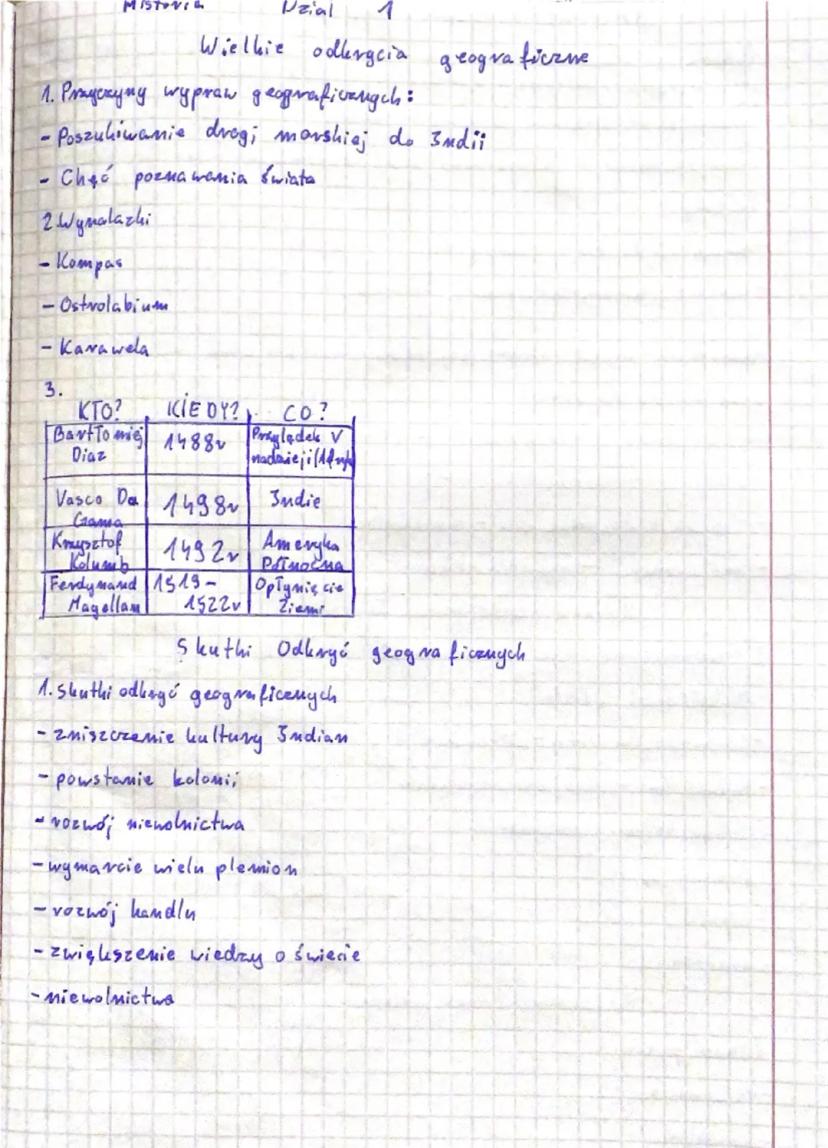 Historia Dział 1
Wielkie odkrycia geograficzne
1. Przyczyny wypraw geograficznych:
- Poszukiwanie drogi morskiej do Indii
- Chęć poznawania świata
2. Wynalazki
- Kompas
- Ostrolabium
- Karawela
3.
KTO? KIEDY? CO?
Bartłomiej Diaz 1488r Przylądek nadzieji
Vasco Da Gama 1498r Indie
Krzysztof Kolumb 1492r Ameryka Północna
Ferdynand Magellan 1519-1522r Opłynięcie Ziemi
Skutki Odkryć geograficznych
1. skutki odkryć geograficznych
- zniszczenie kultury Indian
- powstanie kolonii
- rozwój niewolnictwa
- wymarcie wielu plemion
- rozwój handlu
- zwiększenie wiedzy o świecie
- niewolnictwo